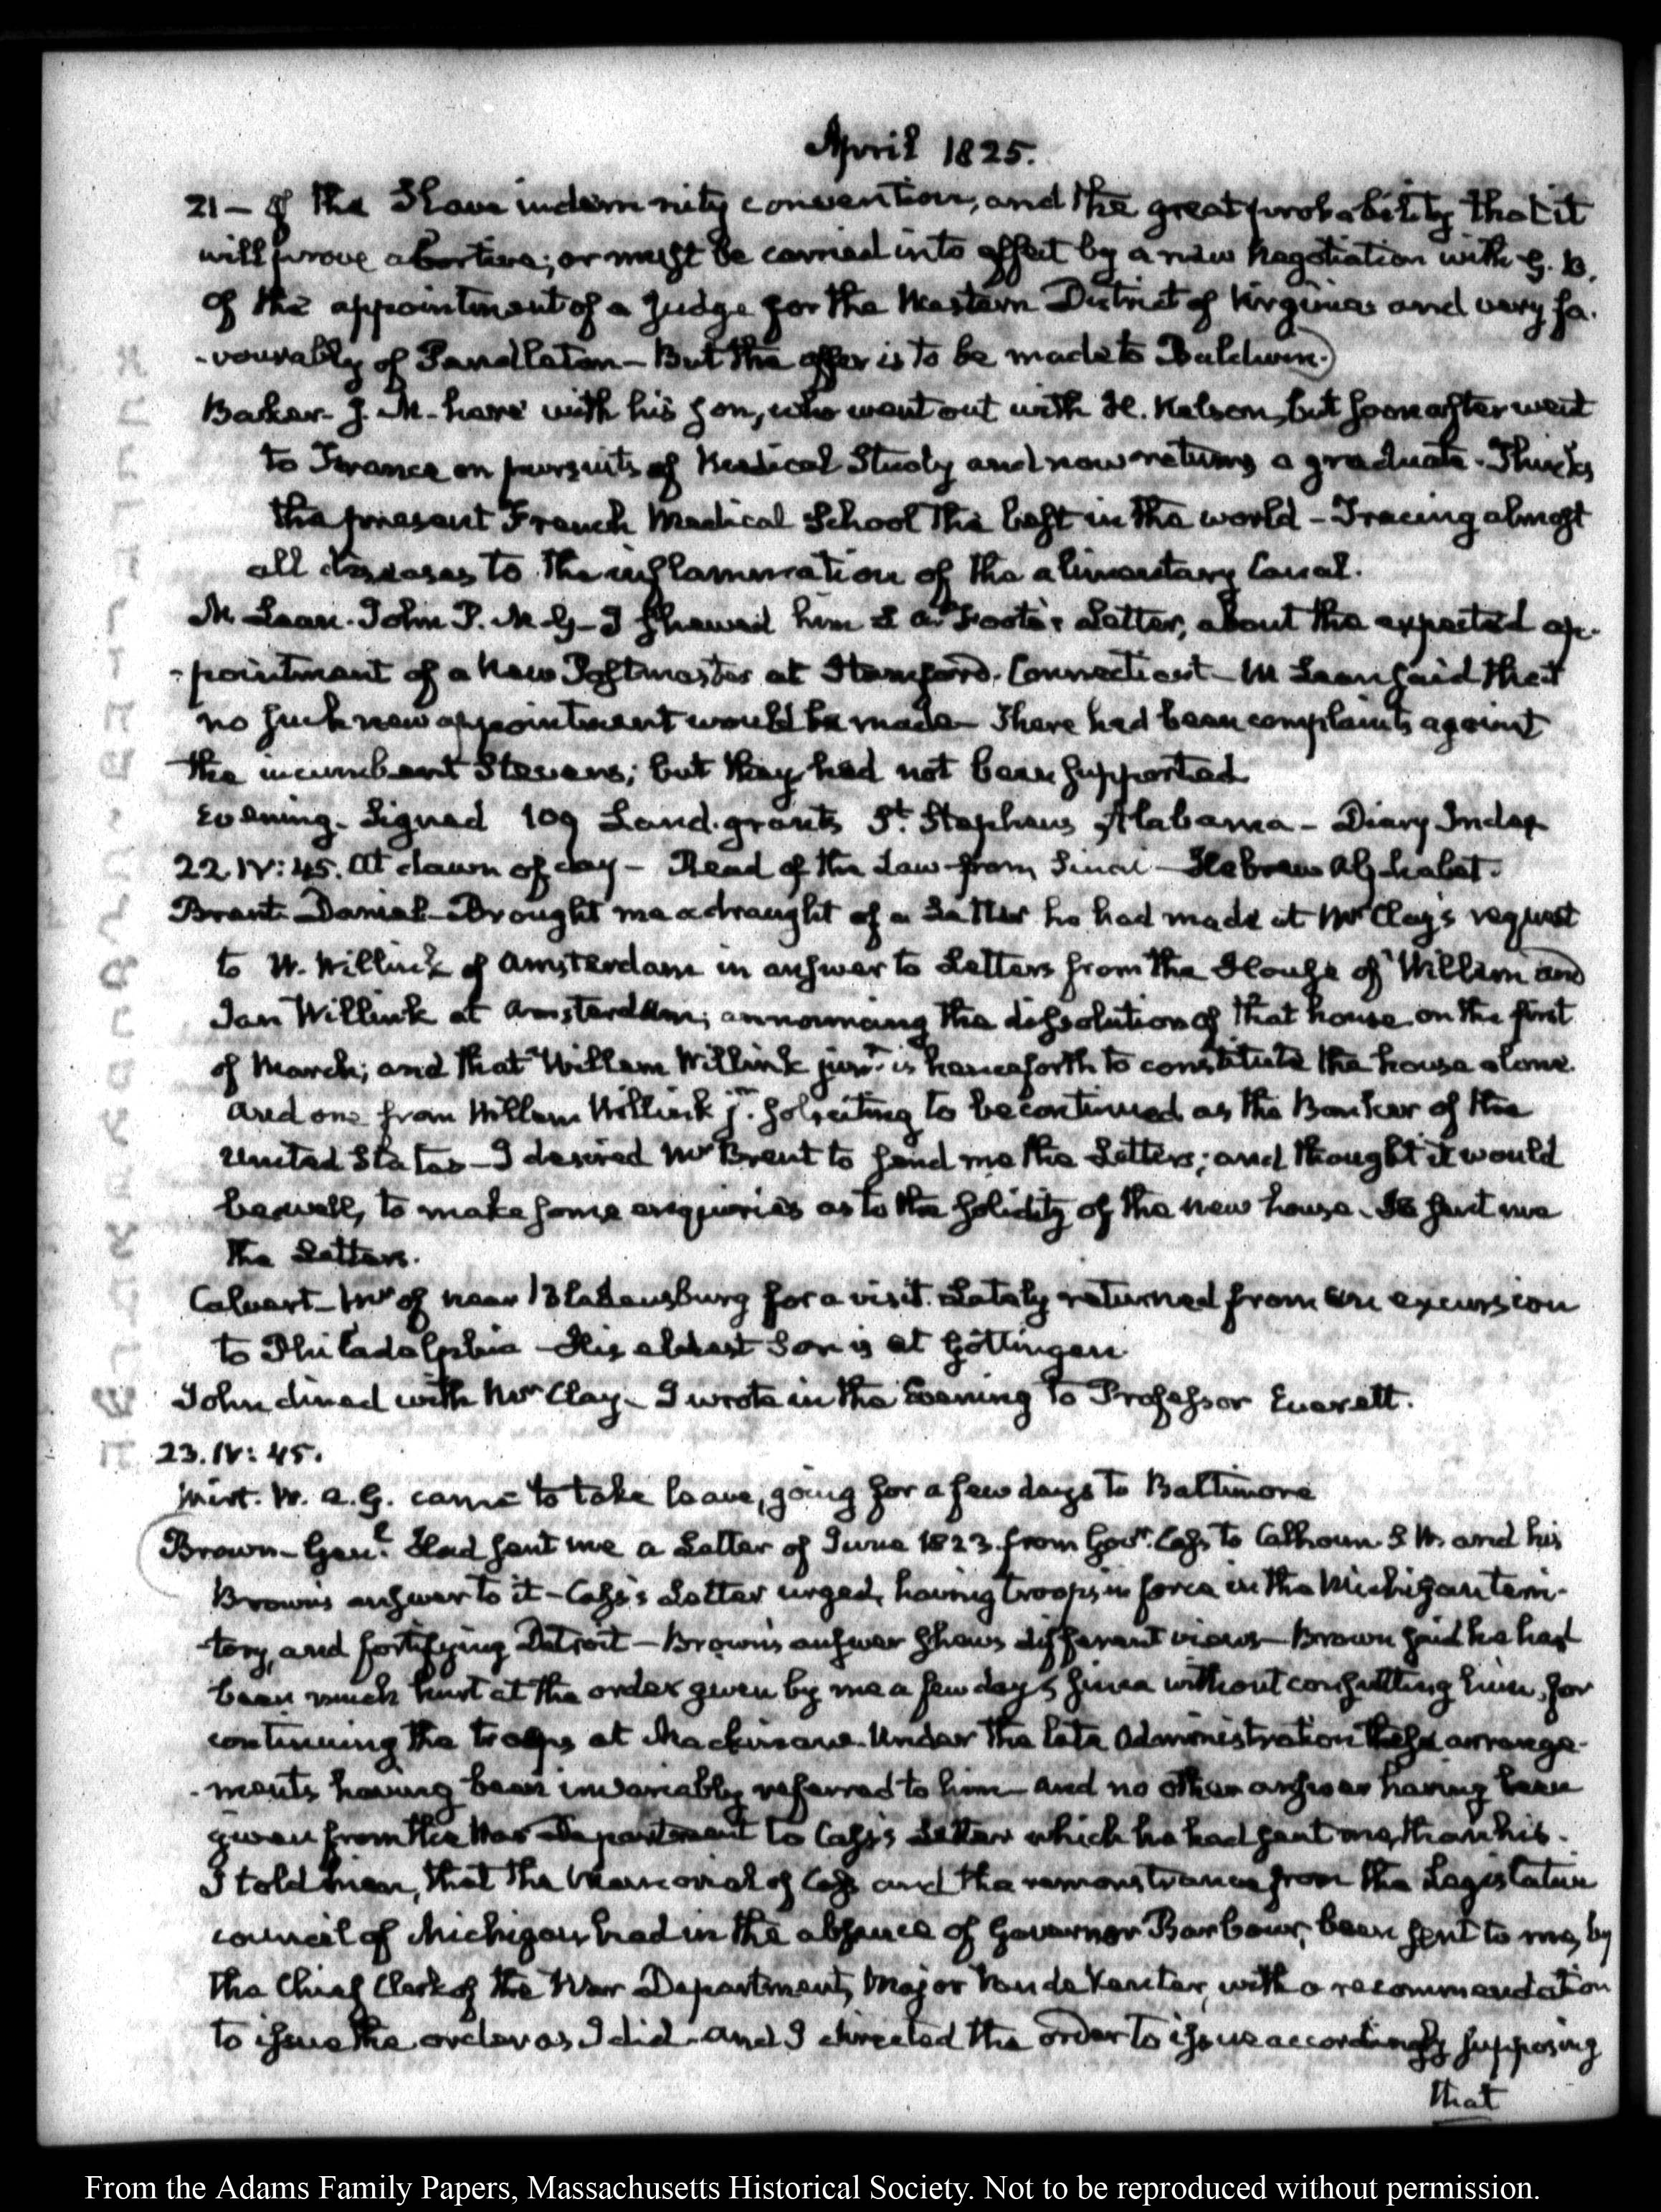 April 1825.
21 — of the Slave indemnity convention, and the great probability that it
will prove abortive; or must be carried into effect by a new Negotiation with G. B.
of the appointment of a Judge for the Western District of Virginia and very fa-
-vourably of Pendleton — But the offer is to be made to Baldwin.)
Baker. J. M. here with his Son, who went out with H. Nelson, but soon after went
to France on pursuits of Medical Study and now returns a graduate. Thinks
the present French Medical School the best in the world — Tracing almost
all diseases to the inflammation of the alimentary Canal.
McLean. John P. M. G — I shewed him Foote's Letter, about the expected ap-
-pointment of a New Postmaster at Stamford. Connecticut — McLean said that
no such new appointment would be made — There had been complaints against
the incumbent Stevens; but they had not been supported
Evening. Signed 109 Land-grants St. Stephens, Alabama — Diary Index
22. IV: 45. At dawn of day — Read of the Law from Sinai — Hebrew Alphabet.
Brent Daniel — Brought me a draught of a Letter he had made at Mr Clay's request
to W. Willink of Amsterdam in answer to Letters from the House of Willem and
Jan Willink at Amsterdam; announcing the dissolution of that house on the first
of March; and that Willem Willink junr. is henceforth to constitute the house alone.
and one from Willem Willink jr. soliciting to be continued as the Banker of the
United States — I desired Mr Brent to send me the Letters; and thought it would
be well, to make some enquiries as to the solidity of the new house. He sent me
the Letters.
Calvert — Mr of near Bladensburg for a visit. Lately returned from an excursion
to Philadelphia — His eldest Son is at Göttingen.
John dined with Mr Clay — I wrote in the Evening to Professor Everett.
23. IV: 45.
Wirt. W. A. G. came to take leave, going for a few days to Baltimore
Brown — Genl. Had sent me a Letter of June 1823. from Govr. Cass to Calhoun S. W. and his
Brown's answer to it — Cass's Letter urged, having troops in force in the Michigan terri-
-tory, and fortifying Detroit — Brown's answer shews different views — Brown said he had
been much hurt at the order given by me a few days since without consulting him, for
continuing the troops at Mackinaw. Under the late Administration these arrange-
-ments having been invariably referred to him — and no other answer having been
given from the War Department to Cass's Letter which he had sent me, than his.
I told him, that the Memorial of Cass and the remonstrance from the Legislative
council of Michigan had in the absence of Governor Barbour, been sent to me, by
the Chief Clerk of the War Department, Major Vandeventer, with a recommendation
to issue the order as I did — and I directed the order to issue accordingly supposing
that
From the Adams Family Papers, Massachusetts Historical Society. Not to be reproduced without permission.